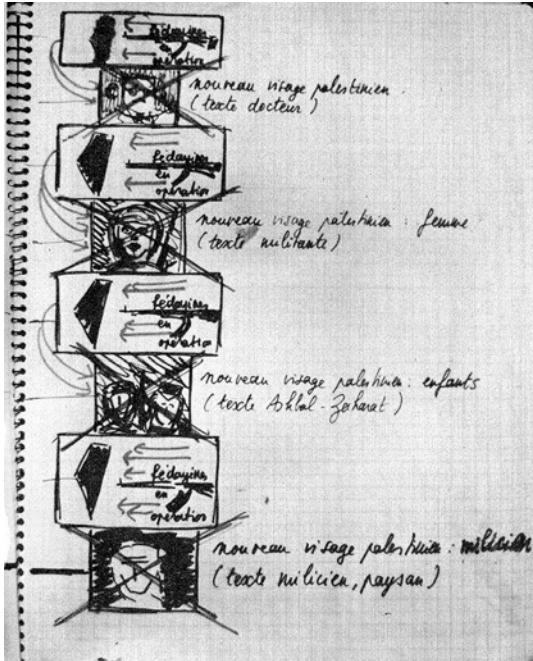 fédayines
en
opération
nouveau visage palestinien.
(texte docteur)
fédayines
en
opération
nouveau visage palestinien : femme
(texte militante)
fédayines
en
opération
nouveau visage palestinien : enfants
(texte Ashbal - Zaharat)
fédayines
en
opération
nouveau visage palestinien : milicien
(texte milicien, paysan)